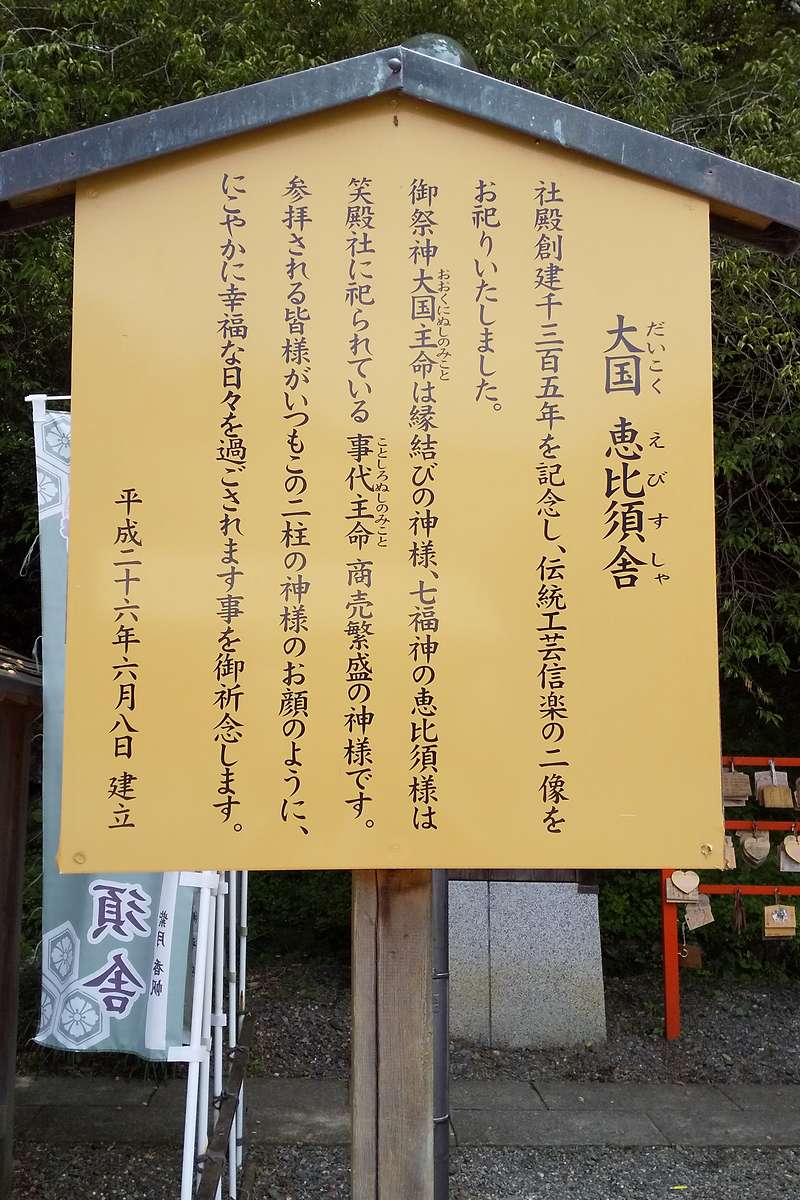 大国 恵比須舎
だいこく えびすしゃ
社殿創建千三百五年を記念し、伝統工芸信楽の二像を
お祀りいたしました。
御祭神大国主命は縁結びの神様、七福神の恵比須様は
おおくにぬしのみこと
笑殿社に祀られている 事代主命 商売繁盛の神様です。
ことしろぬしのみこと
参拝される皆様がいつもこの二柱の神様のお顔のように、
にこやかに幸福な日々を過ごされます事を御祈念します。
平成二十六年六月八日 建立
須舎
紫月 香帆